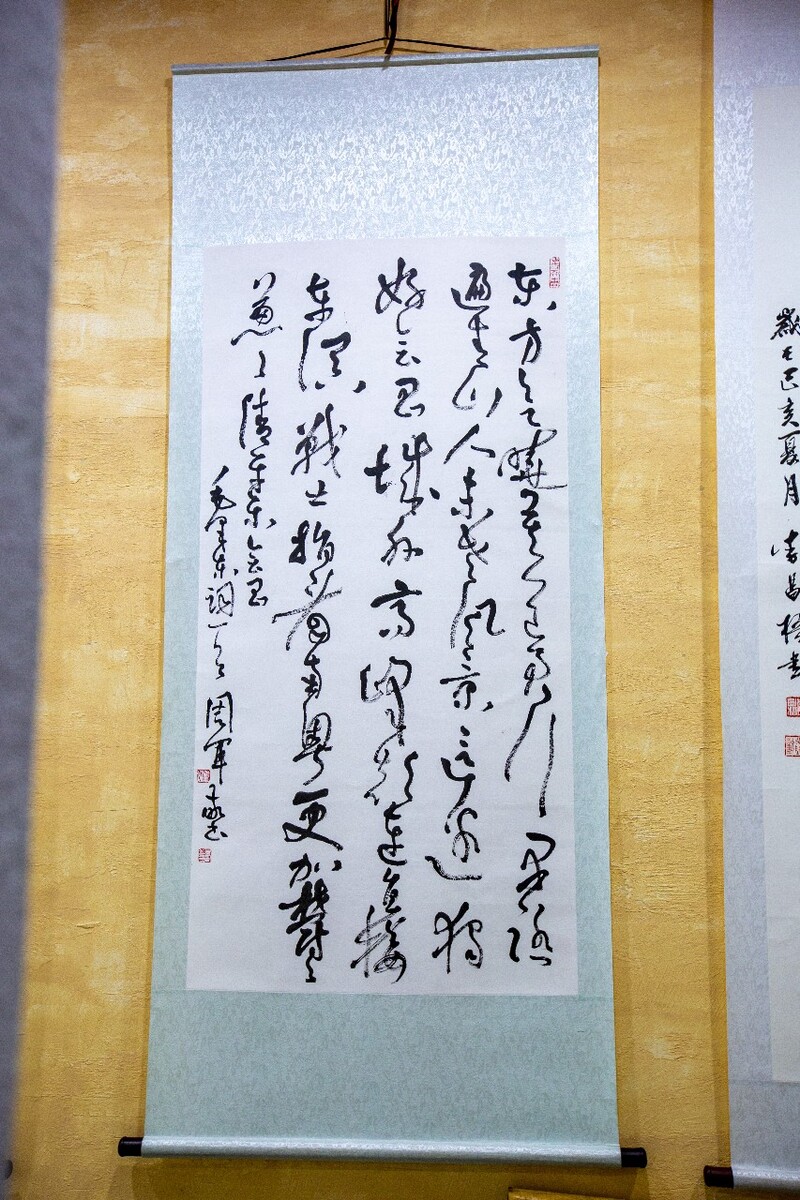 东方欲晓莫道君行早踏
遍青山人未老风景这边独
好会昌城外高峰颠连直接
东溟戰士指看南粤更加鬱〻
葱〻清平乐会昌
毛泽东词一首 周军敬书
歲在己亥夏月